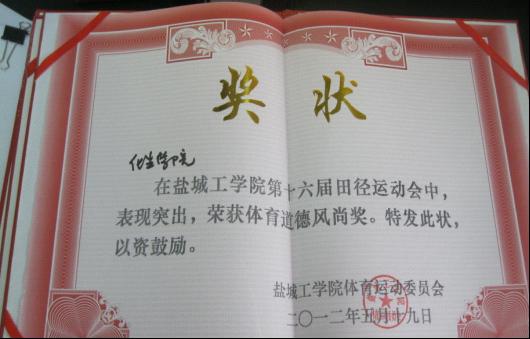 奖 状
化生学院
在盐城工学院第十六届田径运动会中，
表现突出，荣获体育道德风尚奖。特发此状，
以资鼓励。
盐城工学院体育运动委员会
二〇一二年五月十九日